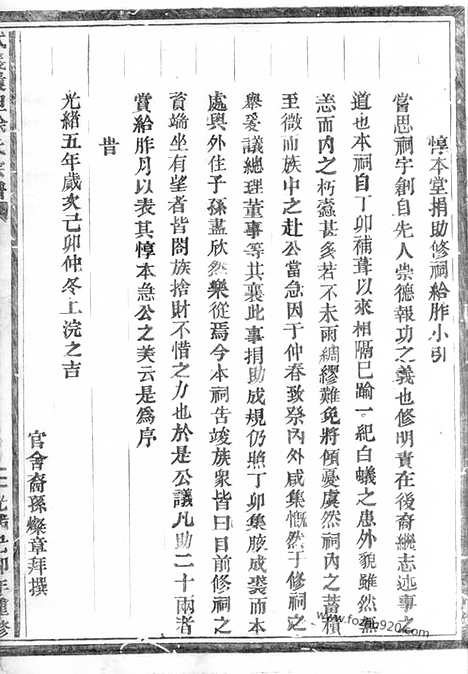 惇本堂捐助修祠給胙小引
嘗思祠宇創自先人崇德報功之義也修明責在後裔繼志述事之
道也本祠自丁卯補葺以來相隔已踰一紀白蟻之患外貌雖然無
恙而內之朽蠹甚多若不未雨綢繆難免將傾憂虞然祠內之蓄積
至微而族中之赴公當急因于仲春致祭內外咸集慨然于修祠之
舉爰議總理董事等共襄此事捐助成規仍照丁卯集腋成裘而本
處與外住子孫盡欣然樂從焉今本祠告竣族衆皆曰目前修祠之
資端坐有望者皆閤族捨財不惜之力也於是公議凡助二十兩者
賞給胙月以表其惇本急公之美云是為序
旹
光緒五年歲次己卯仲冬上浣之吉
官會裔孫燦章拜撰
光緒己卯年重修
www.fozu920.com